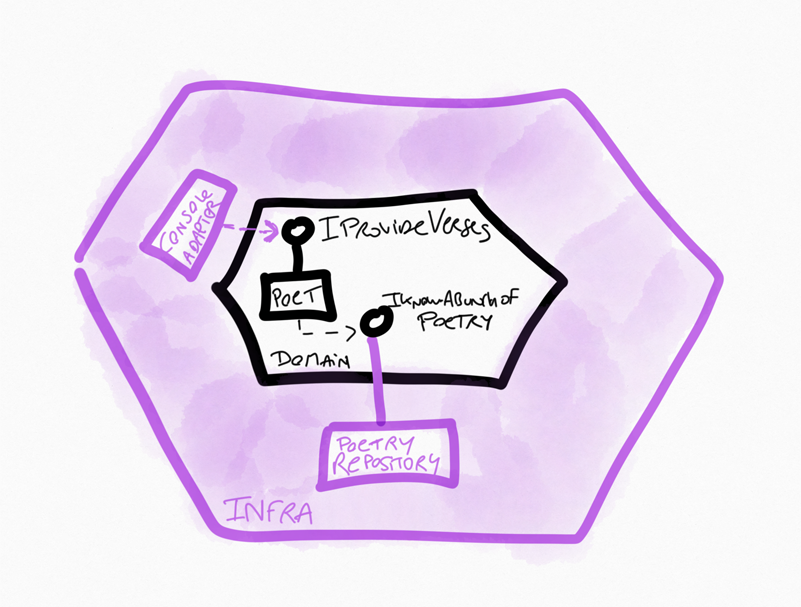 CONSOLE
ADAPTER
IPROVIDEVERSES
POET
IKNOWABUNCHOF
POETRY
DOMAIN
POETRY
REPOSITORY
INFRA